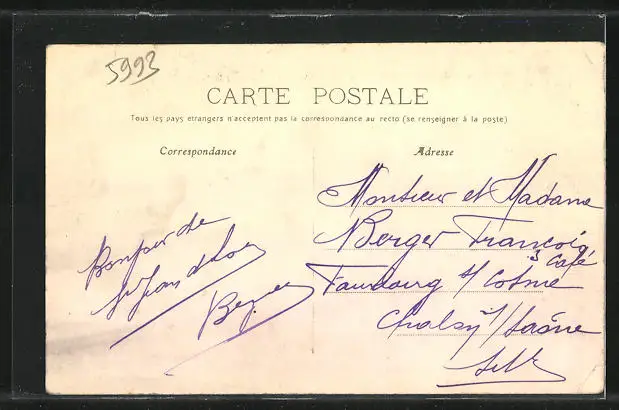 5993
CARTE POSTALE
Tous les pays étrangers n'acceptent pas la correspondance au recto (se renseigner à la poste)
Correspondance
Adresse
Monsieur et Madame
Berger François
Café
Faubourg St Cosme
Chalon s/ Saône
S et L
Bonjour de